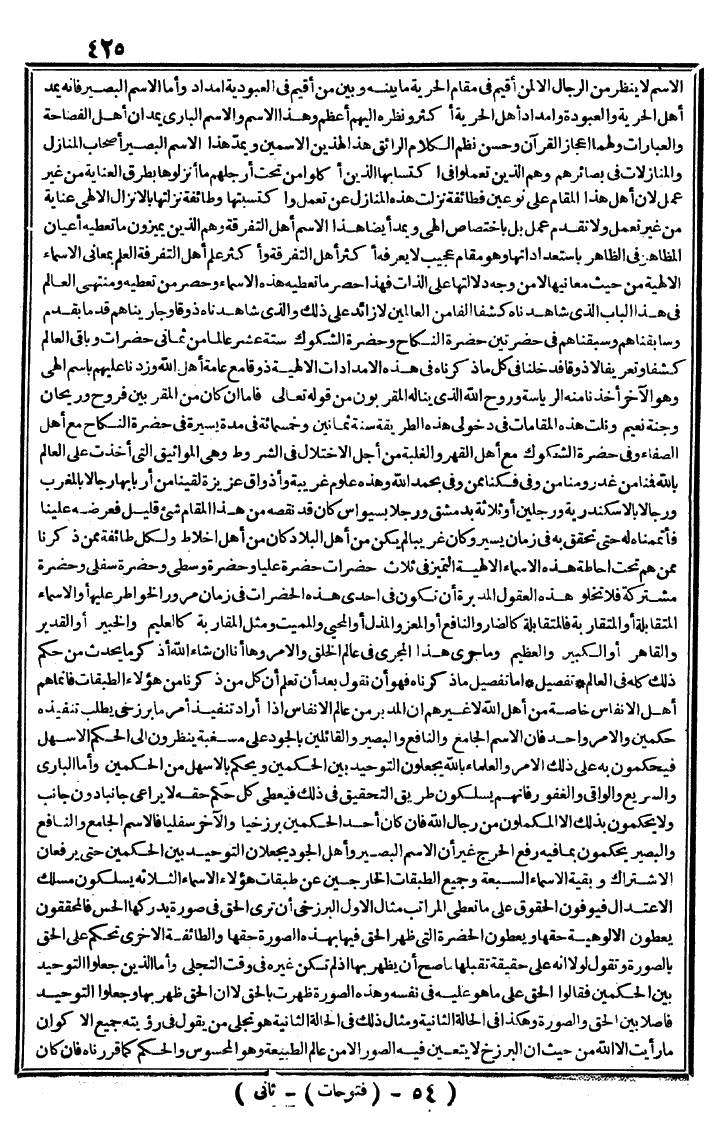 ٤٢٥
الاسم لا ينظر من الرجال الا لمن أقيم فى مقام الحرية مابينه وبين من أقيم فى العبودية امداد وأما الاسم البصير فانه يمد
أهل الحرية والعبودة وامداد أهل الحرية أكثر ونظره اليهم أعظم وهذا الاسم والاسم البارى يمدان أهل الفصاحة
والعبارات ولهما اعجاز القرآن وحسن نظم الكلام الرائق هذا لهذين الاسمين ويمد هذا الاسم البصير أصحاب المنازل
والمنازلات فى بصائرهم وهم الذين تعملوا فى اكتسابها الذين أكلوا من تحت أرجلهم ما أنزلوها بطرق العناية من غير
عمل لان أهل هذا المقام على نوعين فطائفة نزلت هذه المنازل عن تعمل واكتسبتها وطائفة نزلتها بالانزال الالهى عناية
من غير تعمل ولا تقدم عمل بل باختصاص الهى ويمد أيضا هذا الاسم أهل التفرقة وهم الذين يميزون ما تعطيه أعيان
المظاهر فى الظاهر باستعداداتها وهو مقام عجيب لا يعرفه أكثر أهل التفرقة وأكثر علم أهل التفرقة العلم بمعانى الاسماء
الالهية من حيث معانيها لا من وجه دلالتها على الذات فهذا حصر ما تعطيه هذه الاسماء وحصر من تعطيه ومنتهى العالم
فى هذا الباب الذى شاهدناه كشفا ألفا من العالمين لا زائد على ذلك والذى شاهدناه ذوقا وجاريناهم قدما بقدم
وسابقناهم وسبقناهم فى حضرتين حضرة النكاح وحضرة الشكوك ستة عشر عالما من ثمانى حضرات وباقى العالم
كشفا وتعريفا لا ذوقا فدخلنا فى كل ما ذكرناه فى هذه الامدادات الالهية ذوقا مع عامة أهل الله وزدنا عليهم باسم الهى
وهو الآخر أخذنا منه الرياسة وروح الله الذى يناله المقربون من قوله تعالى فاما ان كان من المقربين فروح وريحان
وجنة نعيم ونلت هذه المقامات فى دخولى هذه الطريقة سنة ثمانين وخمسمائة فى مدة يسيرة فى حضرة النكاح مع أهل
الصفاء وفى حضرة الشكوك مع أهل القهر والغلبة من أجل الاختلال فى الشروط وهى المواثيق التى أخذت على العالم
بالله فنامن غدر ومنامن وفى فكناممن وفى بحمد الله وهذه علوم غريبة وأذواق عزيزة لقينا من أربابها رجالا بالمغرب
ورجالا بالاسكندرية ورجلين أو ثلاثة بدمشق ورجلا بسيواس كان قد نقصه من هذا المقام شئ قليل فعرضه علينا
فأتممناه له حتى تحقق به فى زمان يسير وكان غريبا لم يكن من أهل البلاد كان من أهل اخلاط ولكل طائفة ممن ذكرنا
ممن هم تحت احاطة هذه الاسماء الالهية التميز فى ثلاث حضرات حضرة عليا وحضرة وسطى وحضرة سفلى وحضرة
مشتركة فلا تخلو هذه العقول المدبرة أن تكون فى احدى هذه الحضرات فى زمان مرور الخواطر عليها والاسماء
المتقابلة أو المتقاربة فالمتقابلة كالضار والنافع أو المعز والمذل أو المحيى والمميت ومثل المقاربة كالعليم والخبير أو القدير
والقاهر أو الكبير والعظيم وما جرى هذا المجرى فى عالم الخلق والامر وها أنا ان شاء الله أذكر ما يحدث من حكم
ذلك كله فى العالم * تفصيل * اما تفصيل ما ذكرناه فهو أن نقول بعد أن تعلم أن كل من ذكرنا من هؤلاء الطبقات فانماهم
أهل الانفاس خاصة من أهل الله لا غيرهم ان المدبر من عالم الانفاس اذا أراد تنفيذ أمر ما برزخى يطلب تنفيذه
حكمين والامر واحد فان الاسم الجامع والنافع والبصير والقائلين بالجود على مسغبة ينظرون الى الحكم الاسهل
فيحكمون به على ذلك الامر والعلماء بالله يجعلون التوحيد بين الحكمين ويحكم بالاسهل من الحكمين وأما البارى
والسريع والواقى والغفور فانهم يسلكون طريق التحقيق فى ذلك فيعطى كل حكم حقه لا يراعى جانبا دون جانب
ولا يحكمون بذلك الا المكملون من رجال الله فان كان أحد الحكمين برزخيا والآخر سفليا فالاسم الجامع والنافع
والبصير يحكمون بما فيه رفع الحرج غير أن الاسم البصير وأهل الجود يجعلان التوحيد بين الحكمين حتى يرفعان
الاشتراك وبقية الاسماء السبعة وجميع الطبقات الخارجين عن طبقات هؤلاء الاسماء الثلاثة يسلكون مسلك
الاعتدال فيوفون الحقوق على ما تعطى المراتب مثال الاول البرزخى أن ترى الحق فى صورة يدركها الحس فالمحققون
يعطون الالوهية حقها ويعطون الحضرة التى ظهر الحق فيها بهذه الصورة حقها والطائفة الاخرى تحكم على الحق
بالصورة وتقول لولا انه على حقيقة تقبلها ما صح أن يظهر بها اذ لم تكن غيره فى وقت التجلى وأما الذين جعلوا التوحيد
بين الحكمين فقالوا الحق على ما هو عليه فى نفسه وهذه الصورة ظهرت بالحق لا ان الحق ظهر بها وجعلوا التوحيد
فاصلا بين الحق والصورة وهكذا فى الحالة الثانية ومثال ذلك فى الحالة الثانية هو تجلى من يقول فى رؤيته جميع الاكوان
ما رأيت الا الله من حيث ان البرزخ لا يتعين فيه الصور الا من عالم الطبيعة وهو المحسوس والحكم كما قررناه فان كان
( ٥٤ - ( فتوحات ) - ثانى )